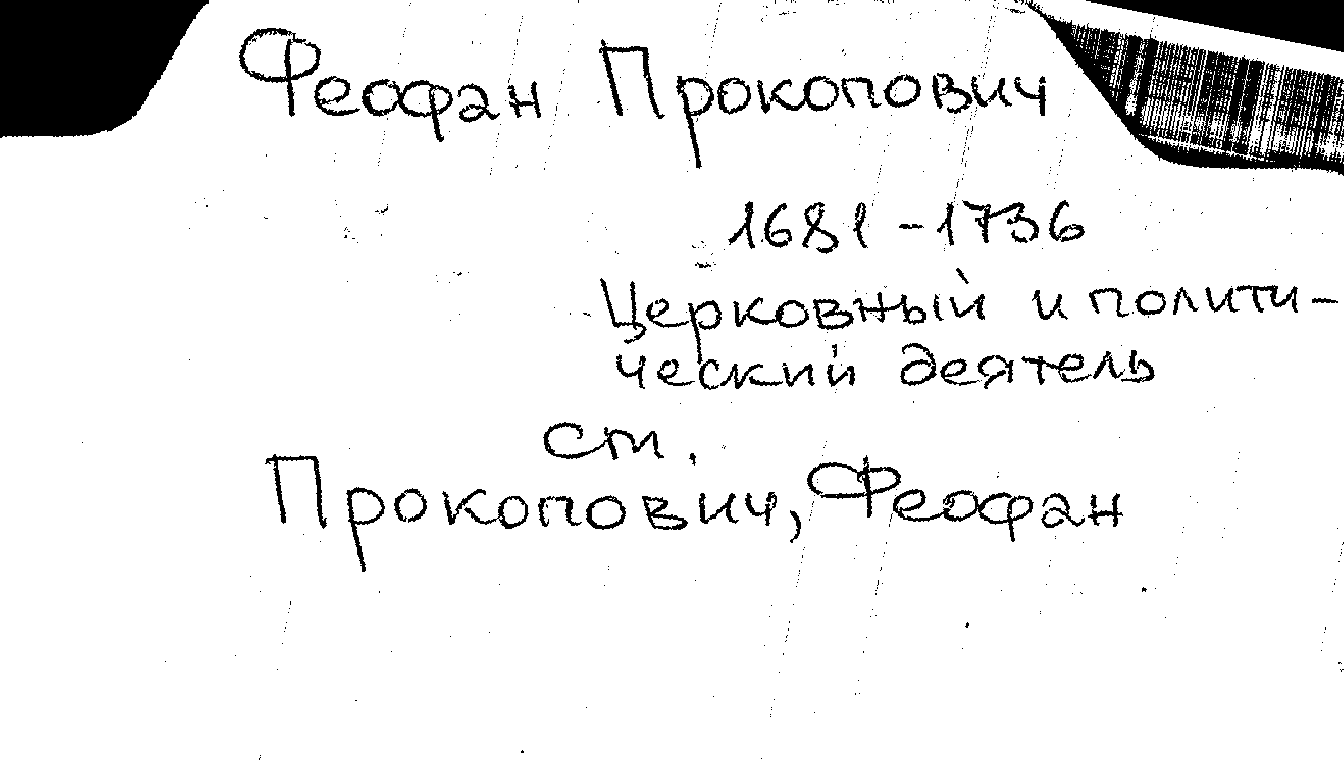 Феофан Прокопович
1681 - 1736
Церковный и полити-
ческий деятель
см.
Прокопович, Феофан